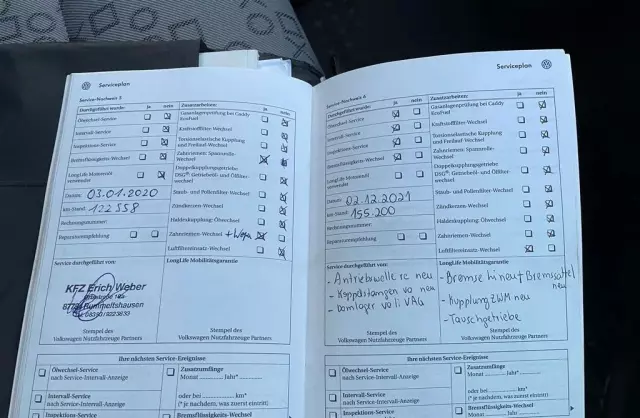 Serviceplan
Service-Nachweis 5
Durchgeführt wurde: ja nein
Ölwechsel-Service
Intervall-Service
Inspektions-Service
Bremsflüssigkeits-Wechsel
LongLife Motorenöl verwendet
Datum: 03.01.2020
km-Stand: 122 558
Rechnungsnummer:
Reparaturempfehlung
Zusatzarbeiten: ja nein
Gasanlagenprüfung bei Caddy EcoFuel
Kraftstofffilter-Wechsel
Torsionselastische Kupplung und Freilauf-Wechsel
Zahnriemen: Spannrolle-Wechsel
Doppelkupplungsgetriebe DSG® Getriebeöl- und Ölfilter-wechsel
Staub- und Pollenfilter-Wechsel
Zündkerzen-Wechsel
Haldexkupplung: Ölwechsel
Zahnriemen-Wechsel
Luftfiltereinsatz-Wechsel
Service durchgeführt von:
KFZ Erich Weber
Stempel des
Volkswagen Nutzfahrzeuge Partners
LongLife Mobilitätsgarantie
Stempel des
Volkswagen Nutzfahrzeuge Partners
Ihre nächsten Service-Ereignisse
Ölwechsel-Service
nach Service-Intervall-Anzeige
Intervall-Service
nach Service-Intervall-Anzeige
Inspektions-Service
Zusatzzählung
Monat Jahr*
oder bei km*
(* je nachdem, was zuerst eintritt)
Bremsflüssigkeits-Wechsel
Serviceplan
Service-Nachweis 6
Durchgeführt wurde: ja nein
Ölwechsel-Service
Intervall-Service
Inspektions-Service
Bremsflüssigkeits-Wechsel
LongLife Motorenöl verwendet
Datum: 02.12.2021
km-Stand: 155.200
Rechnungsnummer:
Reparaturempfehlung
Zusatzarbeiten: ja nein
Gasanlagenprüfung bei Caddy EcoFuel
Kraftstofffilter-Wechsel
Torsionselastische Kupplung und Freilauf-Wechsel
Zahnriemen: Spannrolle-Wechsel
Doppelkupplungsgetriebe DSG® Getriebeöl- und Ölfilter-wechsel
Staub- und Pollenfilter-Wechsel
Zündkerzen-Wechsel
Haldexkupplung: Ölwechsel
Zahnriemen-Wechsel
Luftfiltereinsatz-Wechsel
Service durchgeführt von:
- Antriebswelle re neu
- Koppelstangen va neu
- Domlager vo li VAG
Stempel des
Volkswagen Nutzfahrzeuge Partners
LongLife Mobilitätsgarantie
- Bremse hi neu + Bremssattel neu
- Kupplung ZWM neu
- Tauschgetriebe
Stempel des
Volkswagen Nutzfahrzeuge Partners
Ihre nächsten Service-Ereignisse
Ölwechsel-Service
nach Service-Intervall-Anzeige
Intervall-Service
nach Service-Intervall-Anzeige
Inspektions-Service
Monat Jahr*
oder bei km*
(* je nachdem, was zuerst eintritt)
Bremsflüssigkeits-Wechsel